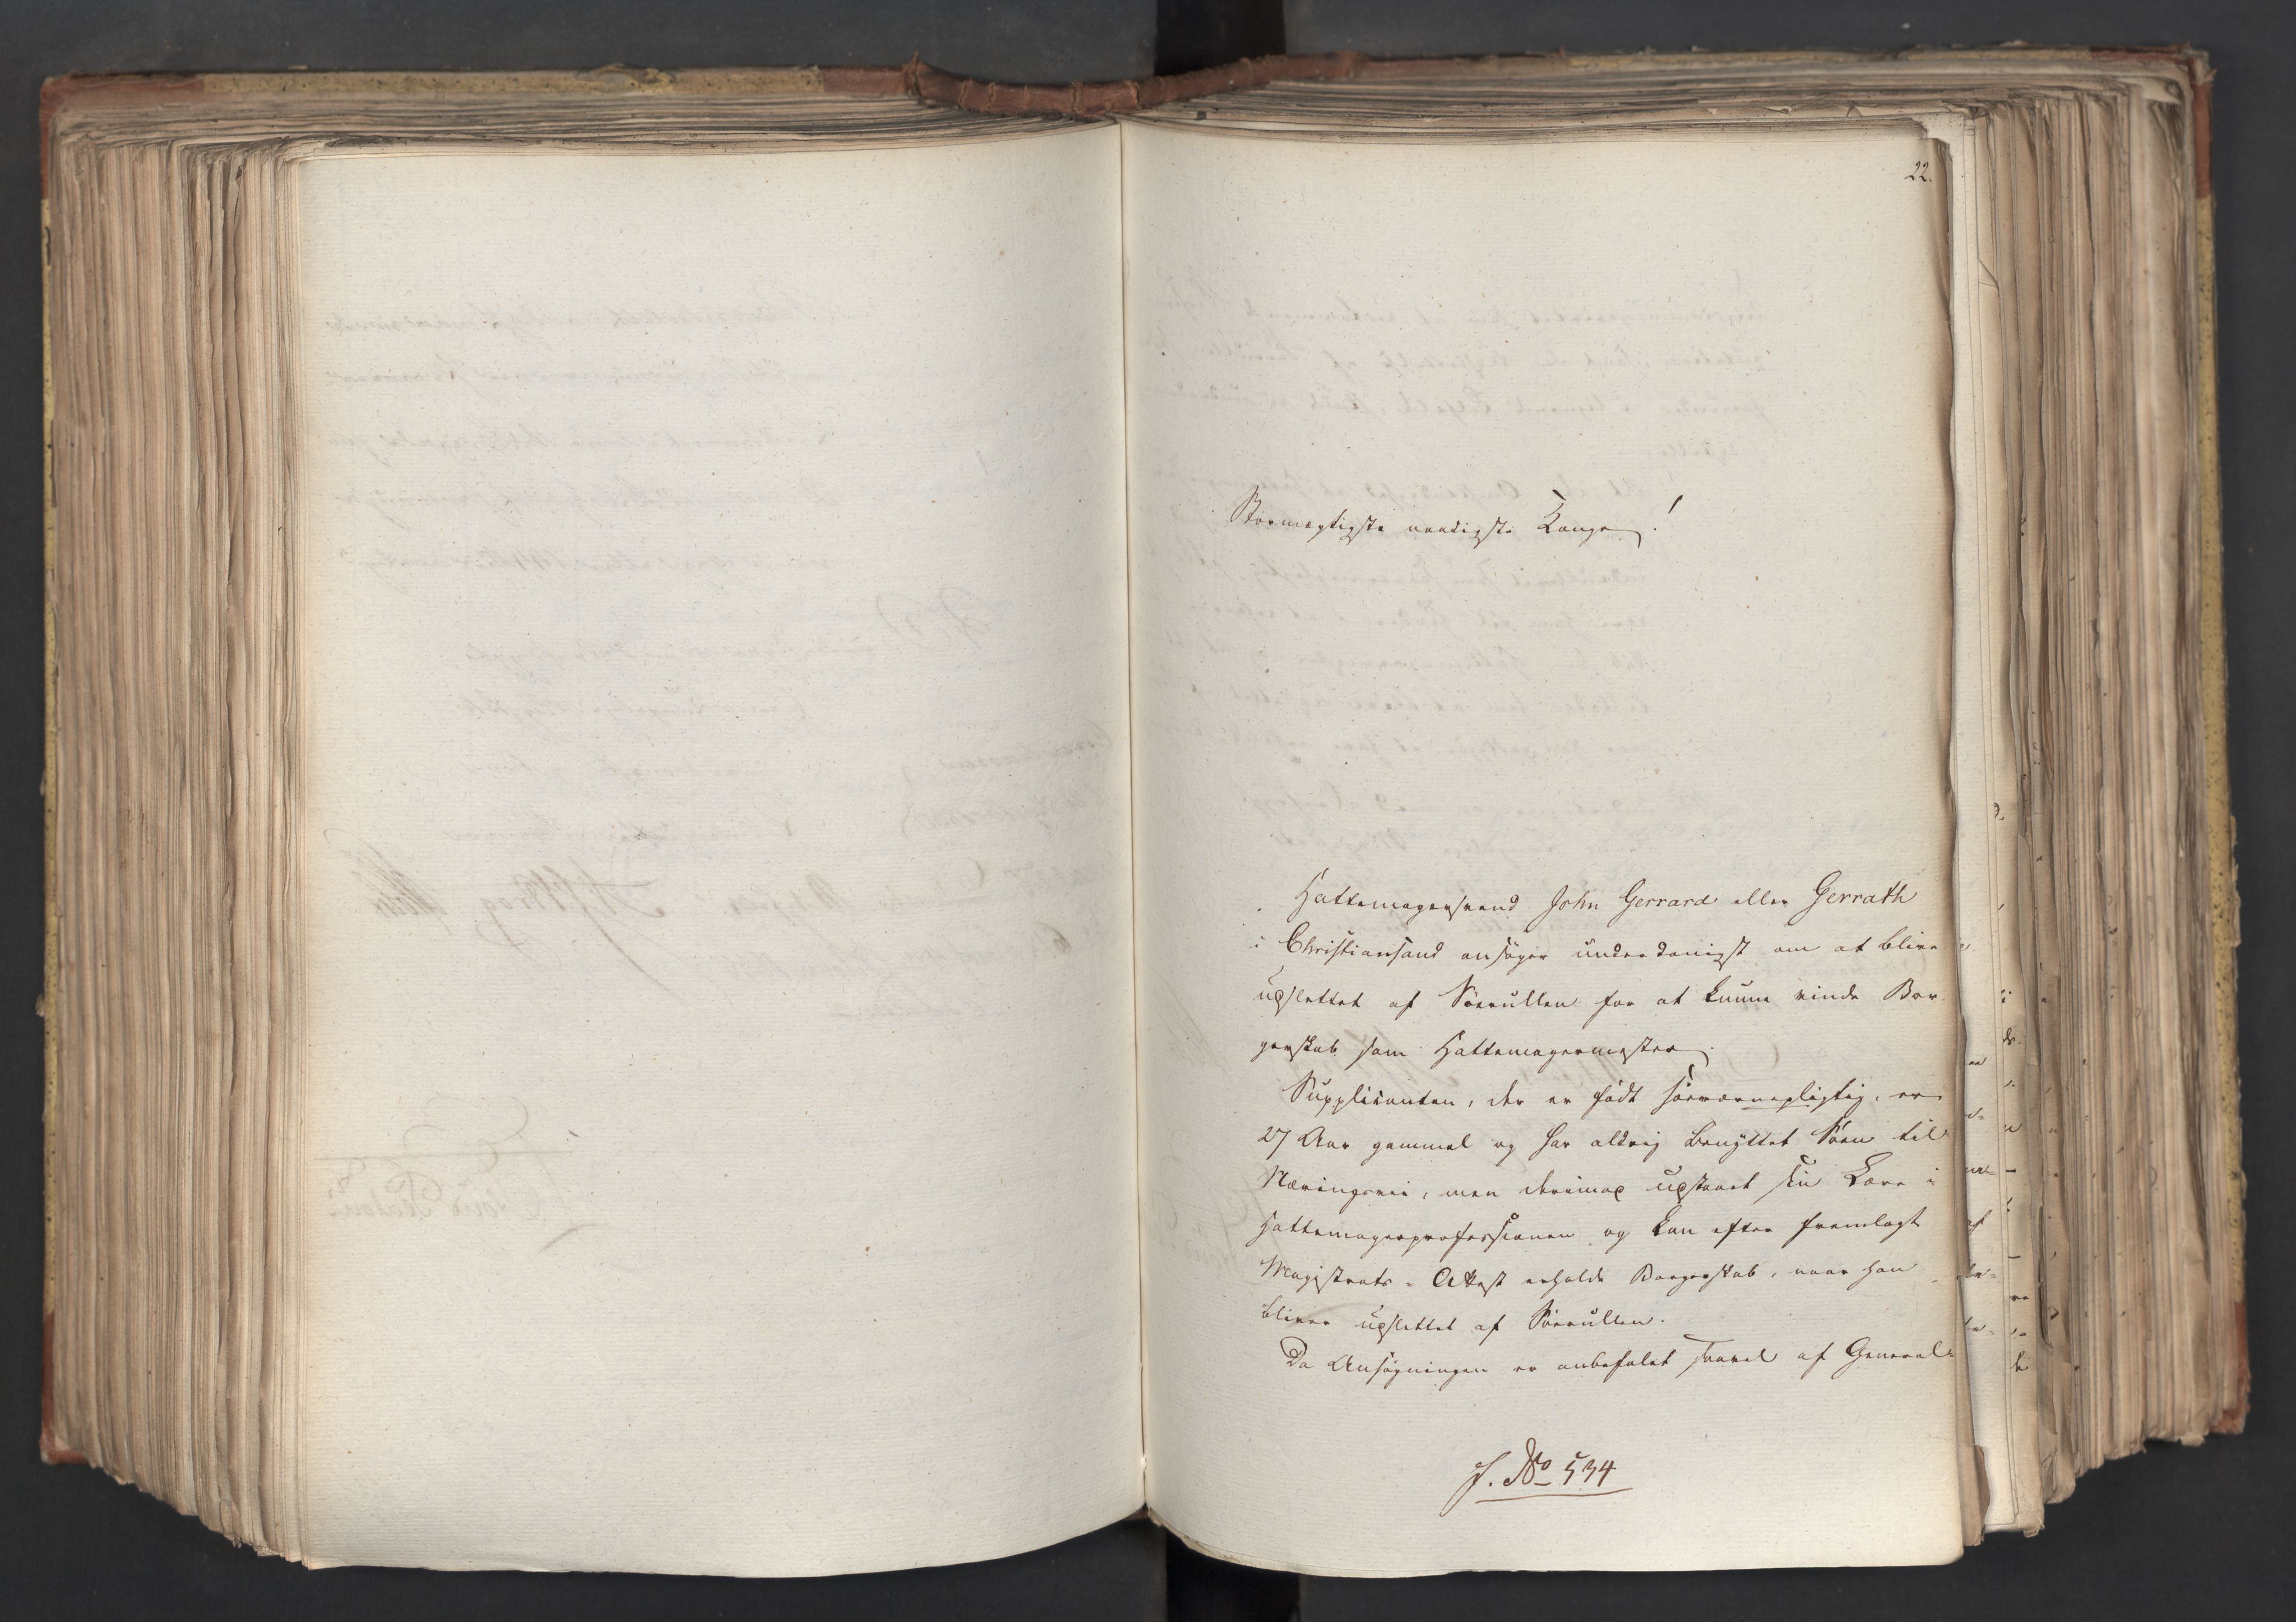 22.
Stormægtigste naadigste Konge!
Hattemagersvend John Gerrard eller Gerrath
i Christiansand ansøger underdanigst om at blive
udslettet af Søerullen for at kunne vinde Bor-
gerskab som Hattemagermester.
Supplikanten, der er født søeværnepligtig, er
27 Aar gammel og har aldrig benyttet Søen til
Næringsvei, men derimod udstaaet sin Lære i
Hattemagerprofessionen og kan efter fremlagt
Magistrats-Attest erholde Borgerskab, naar han
bliver udslettet af Søerullen.
Da Ansøgningen er anbefalet saavel af General-
J. No 534